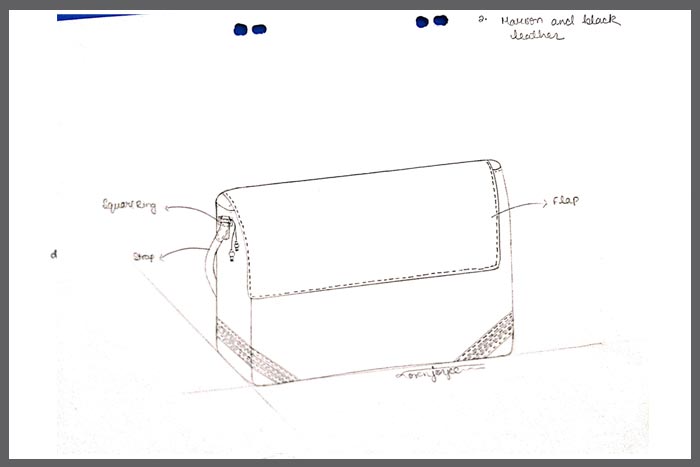 2. Maroon and black
leather
Square Ring
Flap
Strap
d